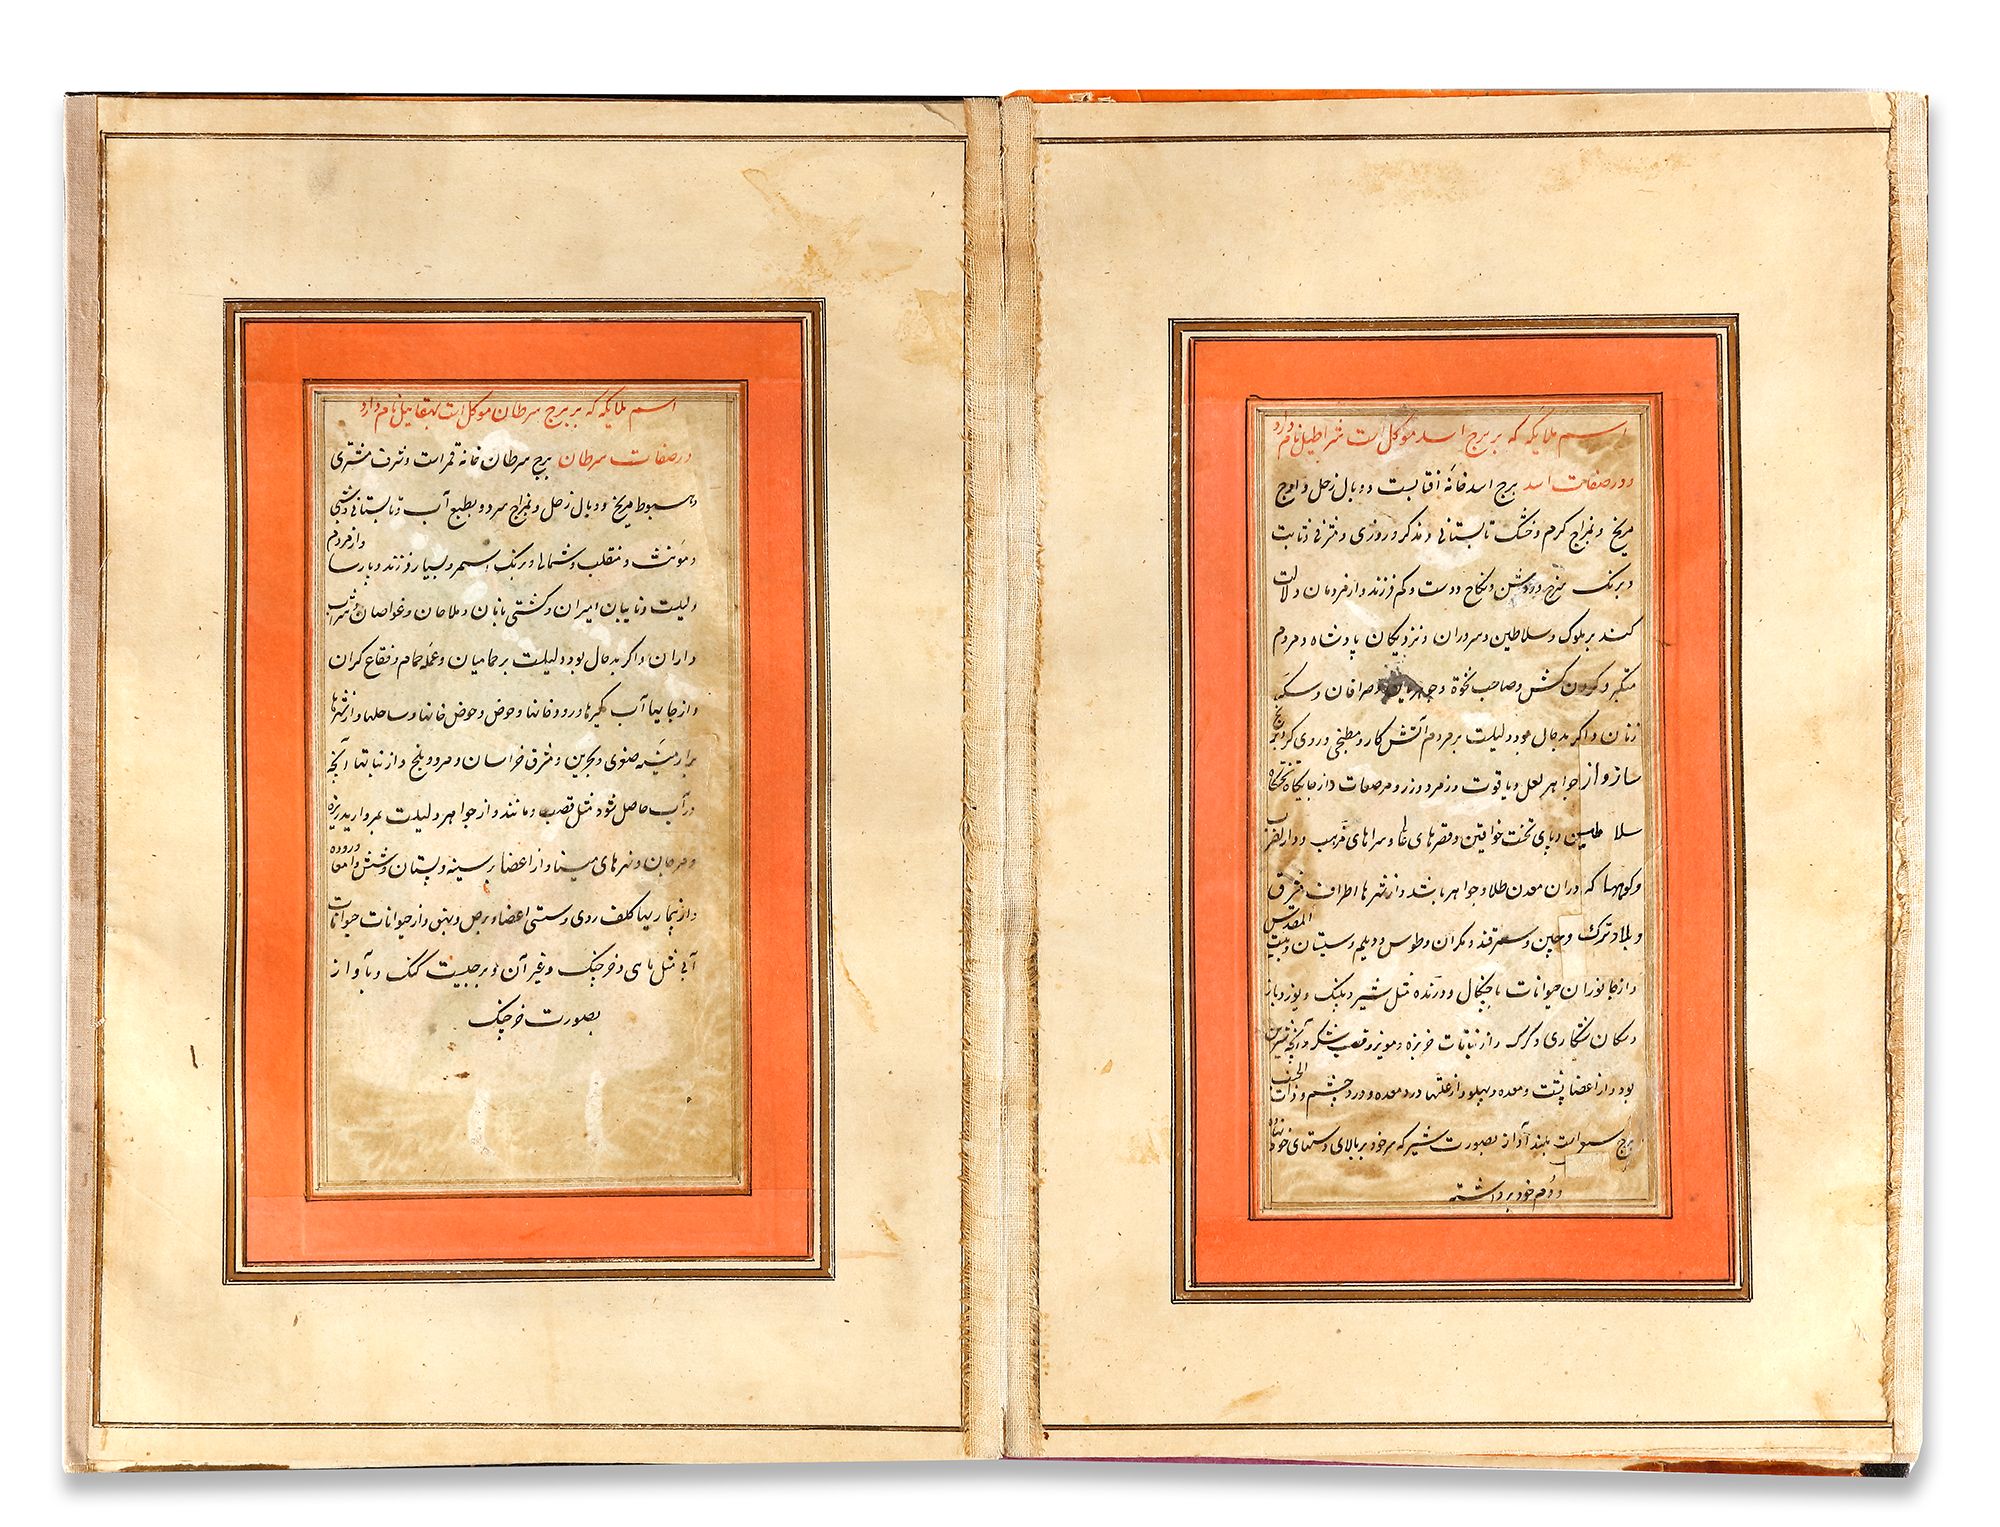 اسم ملایکه که بر برج اسد موکل است شراطیل نام دارد
و در صفات اسد برج اسد خانه آفتابست و وبال زحل و اوج
مریخ و بمزاج کرم و خشک تابستانی و مذکر و روزی و مشرقی و ثابت
و برنک سرخ و روشن و نکاح دوست و کم فرزند و از مردمان دلالت
کند بر ملوک و سلاطین و سروران و نزدیکان پادشاه و مردم
متکبر و کردن کش و صاحب نخوة و جوهریان و صرافان و سکه
زنان و اکر بدحال بود دلیلت بر مردم آتش کار و مطبخی و روی کر و برنج
ساز و از جواهر لعل و یاقوت و زمرد و زر و مرصعات و از جایکاه تختکاه
سلاطین و پای تخت خواقین و قصرهای عالی و سراهای مذهب و دار الضرب
و کوهها که در ان معدن طلا و جواهر باشد و از شهرها اطراف مشرق
و بلاد ترک و چین و سمرقند و مکران و طوس و دیلم و سیستان و بیت المقدس
و از جانوران حیوانات با چنکال و درنده مثل شیر و پلنک و یوز و باز
و سکان شکاری و کرک و از نباتات خربزه و مویز و قصب شکر و آنچه شیرین
بود و از اعضا پشت و معده و پهلو و از علتها درد معده و درد چشم و ذات الجنب
برج است بلند آواز بصورت شیر که سر خود بر بالای دستهای خود نهاده
و دم خود برداشته
اسم ملایکه که بر برج سرطان موکل است نام دارد
در صفات سرطان برج سرطان خانه قمر است و شرف مشتری
و هبوط مریخ و وبال زحل و بمزاج سرد و بطبع آب و تابستانی و شبی
و مؤنث و منقلب و شمالی و برنک اسمر و بسیار فرزند و پارسا و از مردم
دلیلت و نایبان امیران و کشتی بانان و ملاحان و غواصان و شراب
داران و اکر بدحال بود دلیلت بر حمامیان و عمله حمام و فقاع کران
و از جایها آب کیرها و رودخانها و حوض و حوض خانها و ساحلها و از شهرها
بر ارمنیه صغری و بحرین و مشرق خراسان و مرو و بلخ و از نباتها آنچه
در آب حاصل شود مثل قصب و مانند و از جواهر دلیلت بمروارید ریزه
و مرجان و مهرهای مینا و از اعضا بر سینه و پستان و شش و امعا و روده
و از بیماریها کلف روی و سستی اعضا و برص و بهق و از حیوانات حیوانات
آبی مثل ماهی و خرچنک و غیر آن و برجیست کنک و بی آواز
بصورت خرچنک